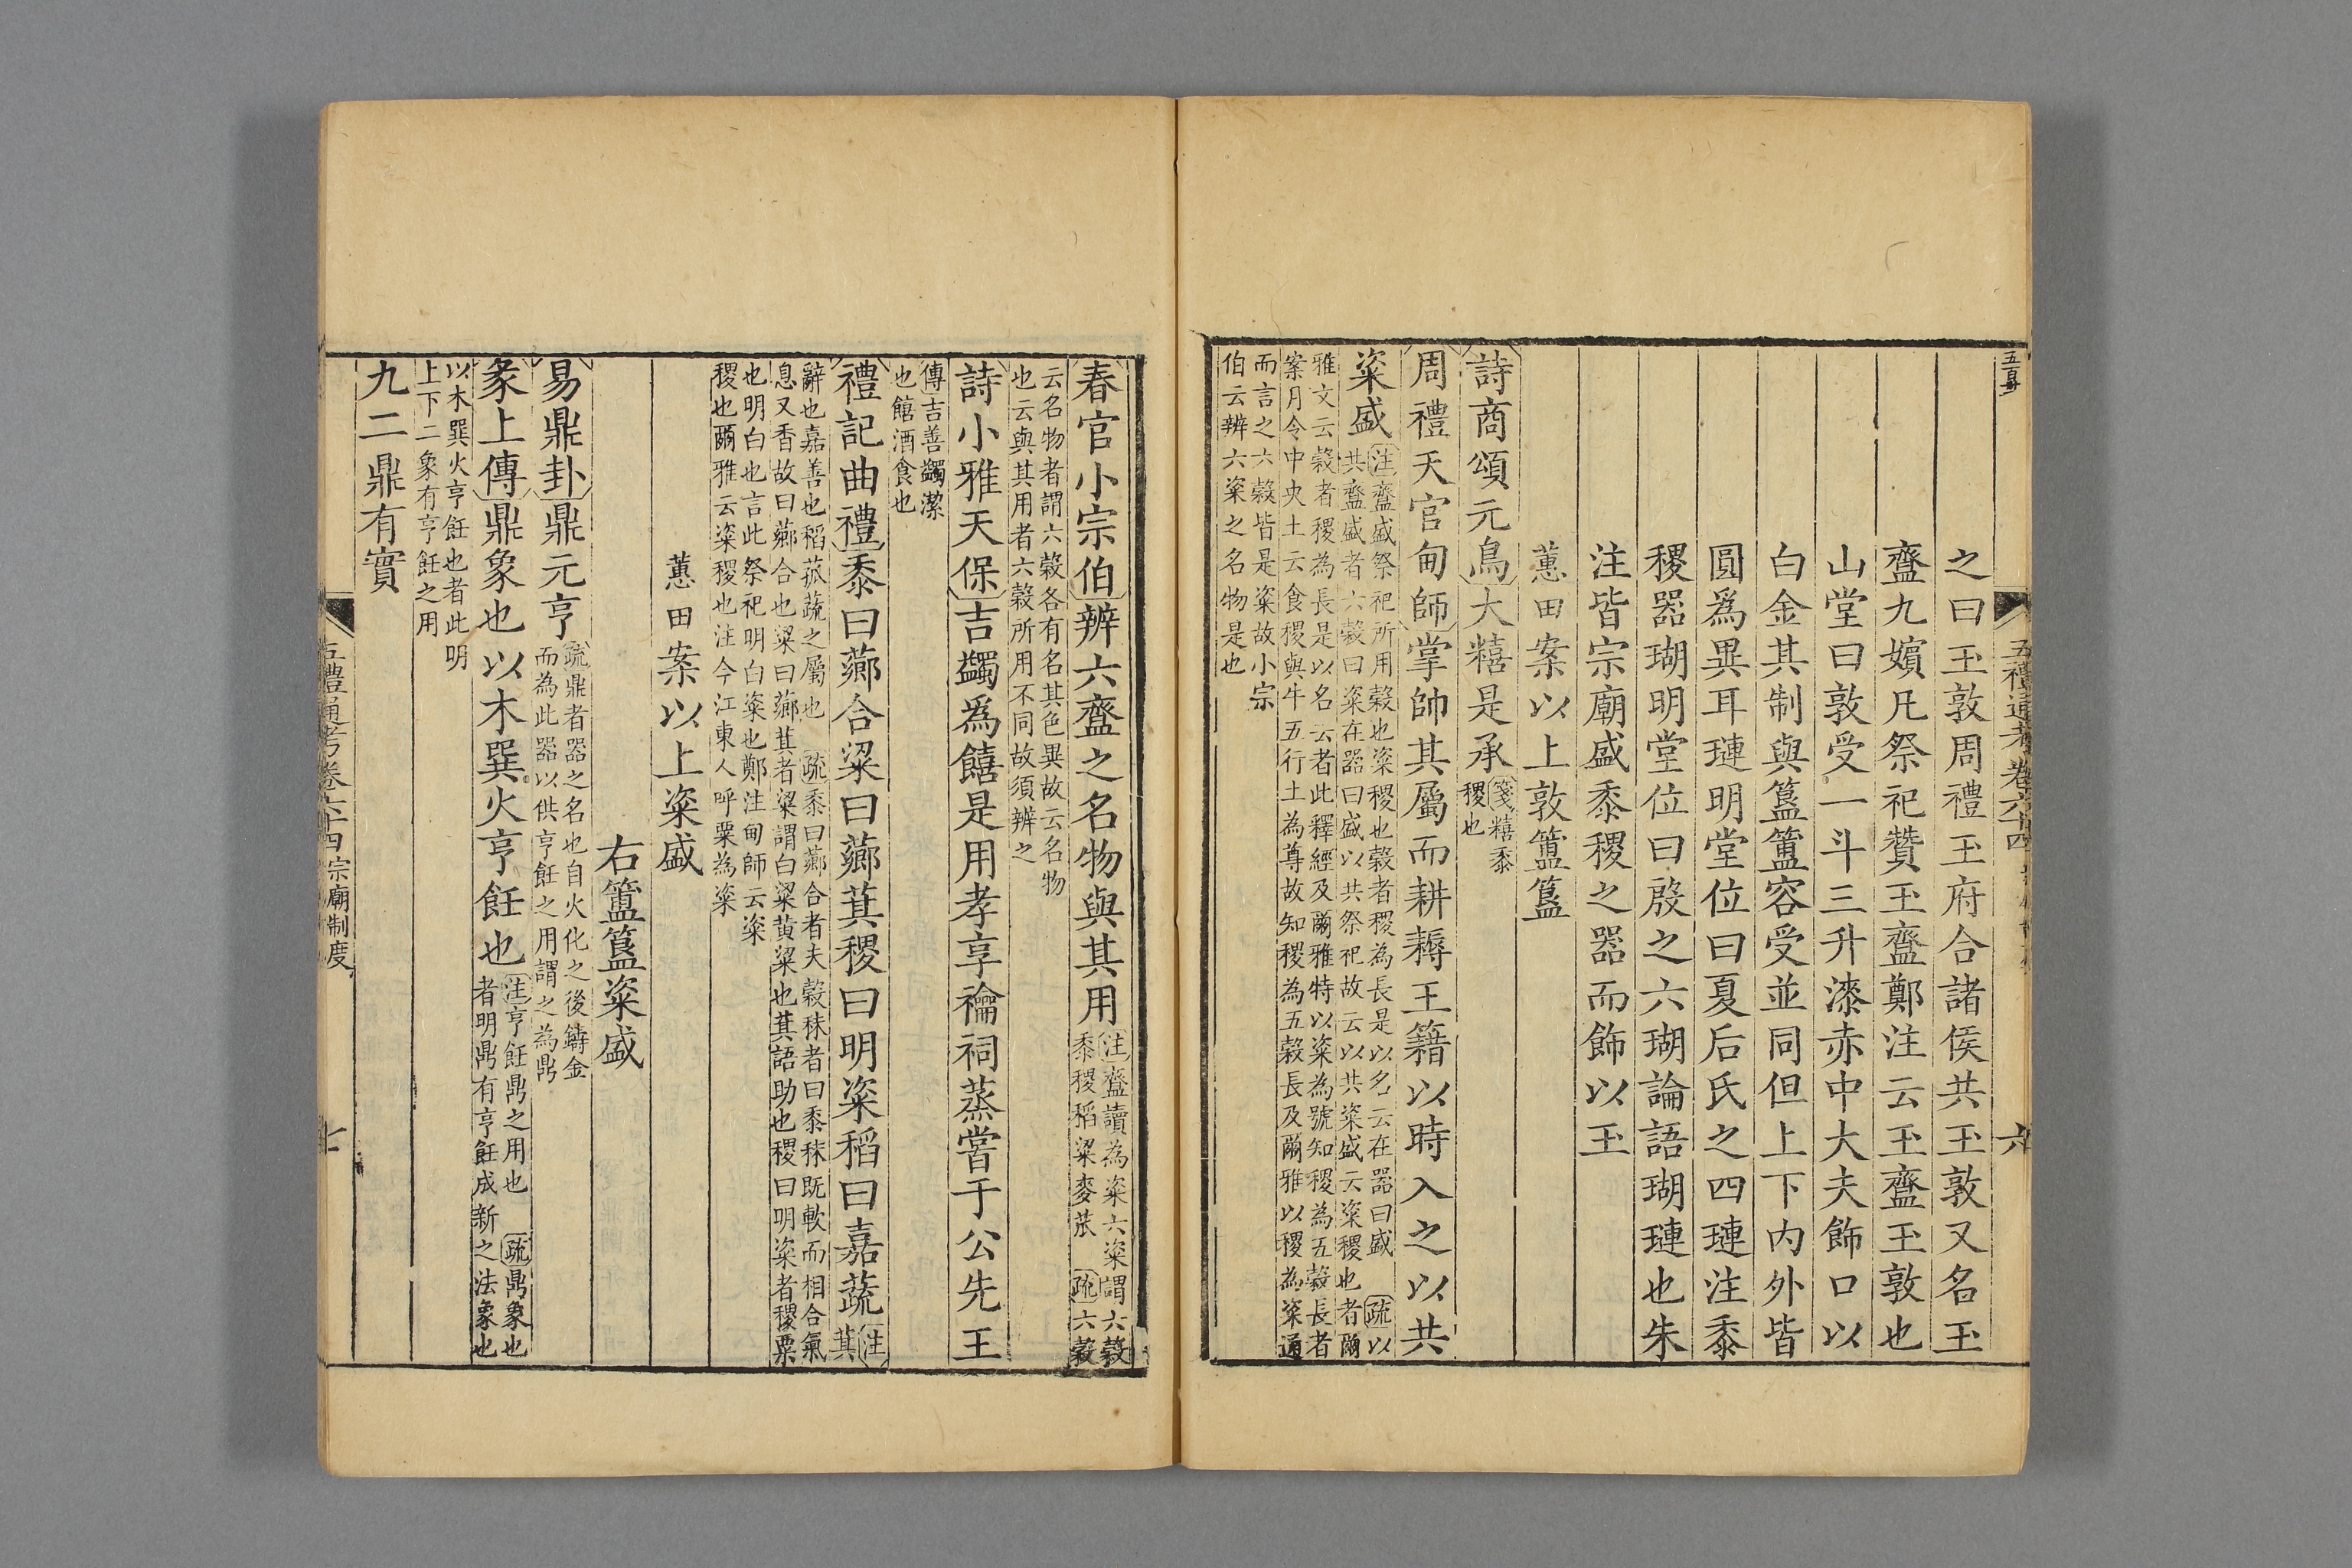 五禮通考卷六十四
六
之曰玉敦周禮玉府合諸侯共玉敦又名玉
齍九嬪凡祭祀贊玉齍鄭注云玉齍玉敦也
山堂曰敦受一斗三升漆赤中大夫飾口以
白金其制與簋簠容受並同但上下内外皆
圓為異耳璉明堂位曰夏后氏之四璉注黍
稷器瑚明堂位曰殷之六瑚論語瑚璉也朱
注皆宗廟盛黍稷之器而飾以玉
蕙田案以上敦簠簋
詩商頌元鳥大糦是承箋糦黍
稷也
周禮天官甸師掌帥其屬而耕耨王籍以時入之以共
粢盛注齍盛祭祀所用穀也粢稷也穀者稷為長是以名云在器曰盛 疏以
共齍盛者六穀曰粢在器曰盛以共祭祀故云以共粢盛云粢稷也者爾
雅文云穀者稷為長是以名云者此釋經及爾雅特以粢為號知稷為五穀長者
案月令中央土云食稷與牛五行土為尊故知稷為五穀長及爾雅以稷為粢通
而言之六穀皆是粢故小宗
伯云辨六粢之名物是也
春官小宗伯辨六齍之名物與其用注齍讀為粢六粢謂六穀
黍稷稻粱麥苽 疏六穀
云名物者謂六穀各有名其色異故云名物
也云與其用者六穀所用不同故須辨之
詩小雅天保吉蠲為饎是用孝享禴祠蒸嘗于公先王
傳吉善蠲潔
也饎酒食也
禮記曲禮黍曰薌合粱曰薌萁稷曰明粢稻曰嘉蔬注
萁
辭也嘉善也稻菰蔬之屬也 疏黍曰薌合者夫穀秫者曰黍秫既軟而相合氣
息又香故曰薌合也粱曰薌萁者粱謂白粱黄粱也萁語助也稷曰明粢者稷粟
也明白也言此祭祀明白粢也鄭注甸師云粢
稷也爾雅云粢稷也注今江東人呼粟為粢
蕙田案以上粢盛
右簠簋粢盛
易鼎卦鼎元亨疏鼎者器之名也自火化之後鑄金
而為此器以供亨飪之用謂之為鼎
彖上傳鼎象也以木巽火亨飪也注亨飪鼎之用也 疏鼎象也
者明鼎有亨飪成新之法象也
以木巽火亨飪也者此明
上下二象有亨飪之用
九二鼎有實
五禮通考卷六十四宗廟制度
七